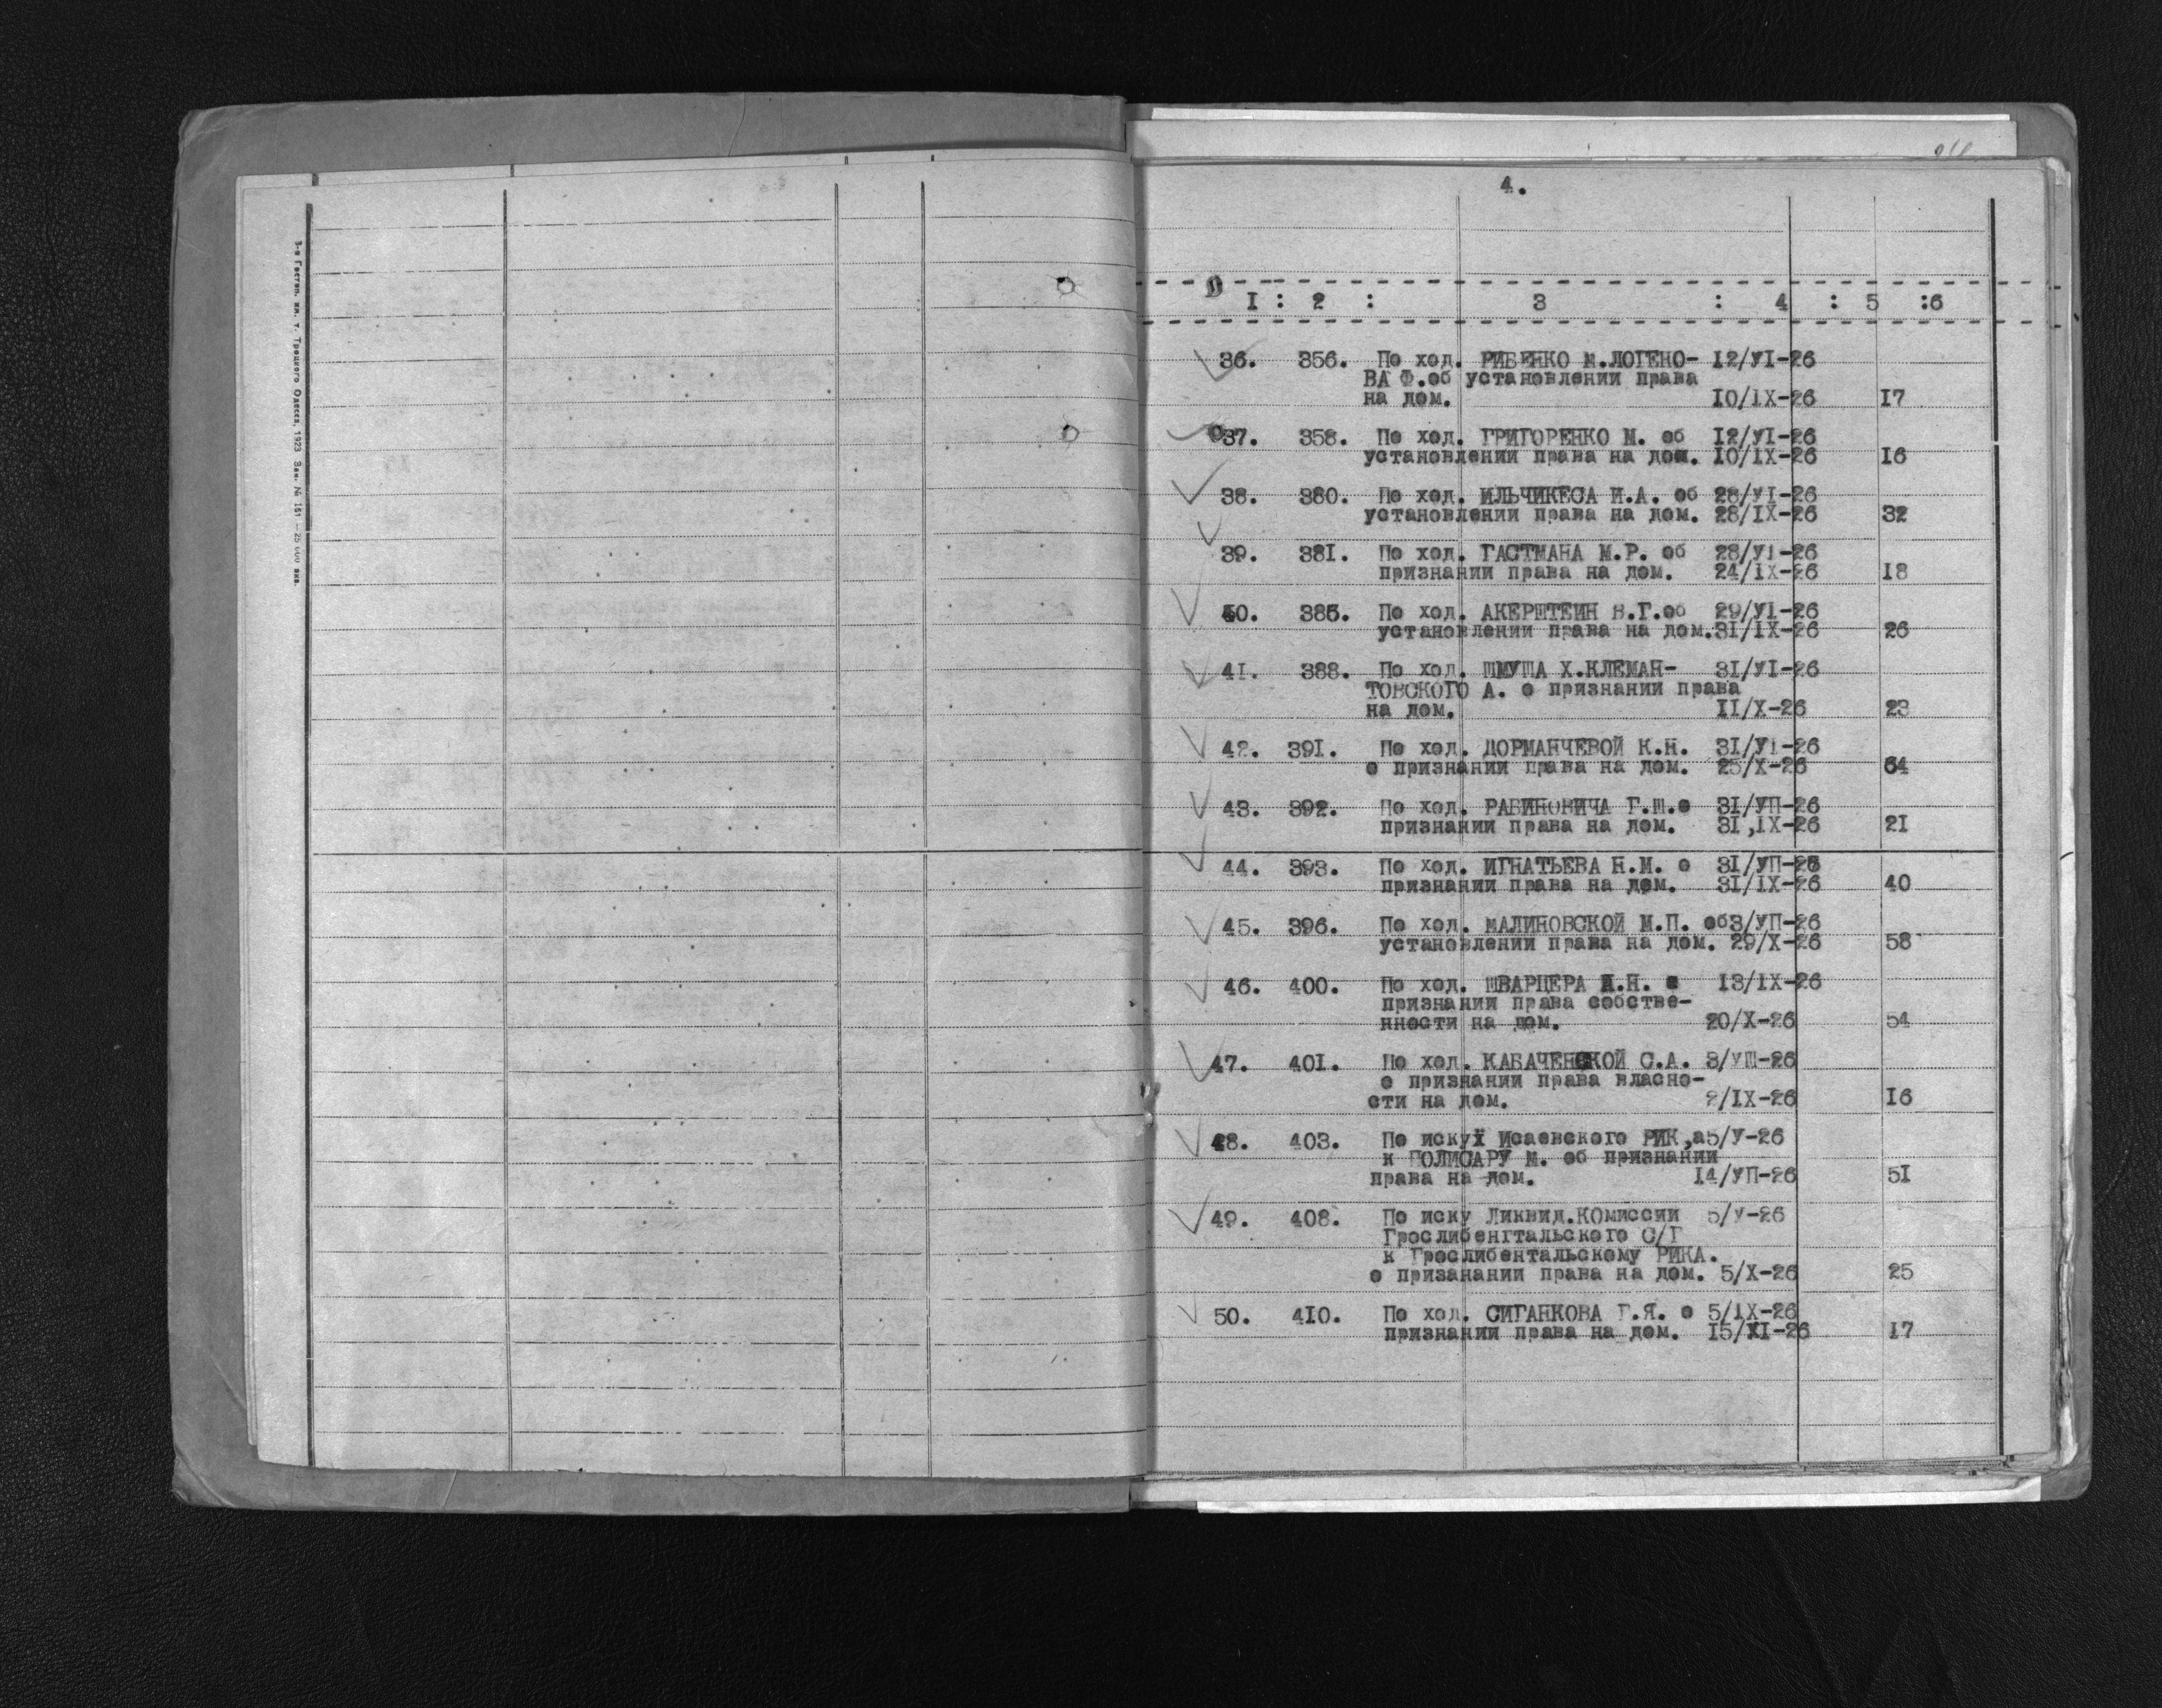 3-я Гостип. им. т. Троцкого Одесса, 1923 Зак. № 151 — 25 000 экз.
4.
1 : 2 : 3 : 4 : 5 :6
36. 356. По ход. РИБЕНКО М.ЛОГЕНО- I2/УI-26
ВА Ф.об установлении права
на дом. IO/IX-26 I7
37. 358. По ход. ГРИГОРЕНКО М. об I2/УI-26
установлении права на дом. IO/IX-26 I6
38. 380. По ход. ИЛЬЧИКЕСА И.А. об 28/УI-26
установлении права на дом. 28/IX-26 32
39. 38I. По ход. ГАСТМАНА М.Р. об 28/УI-26
признании права на дом. 24/IX-26 I8
40. 385. По ход. АКЕРШТЕИН В.Г.об 29/УI-26
установлении права на дом.3I/IX-26 26
4I. 388. По ход. ШМУША Х.КЛЕМАН- 3I/УI-26
ТОВСКОГО А. о признании права
на дом. II/X-26 23
42. 39I. По ход. ДОРМАНЧЕВОЙ К.Н. 3I/УI-26
о признании права на дом. 25/X-26 64
43. 392. По ход. РАБИНОВИЧА Г.Ш.о 3I/УП-26
признании права на дом. 3I,IX-26 2I
44. 393. По ход. ИГНАТЬЕВА Н.М. о 3I/УП-26
признании права на дом. 3I/IX-26 40
45. 396. По ход. МАЛИНОВСКОЙ М.П. об3/УП-26
установлении права на дом. 29/X-26 58
46. 400. По ход. ШВАРЦЕРА Н. о I3/IX-26
признании права собстве-
нности на дом. 20/X-26 54
47. 40I. По ход. КАБАЧЕНСКОЙ С.А. 3/УШ-26
о признании права власно-
сти на дом. 2/IX-26 I6
48. 403. По иску Исаевского РИК,а5/У-26
к ПОЛИСАРУ М. об признании
права на дом. I4/УП-26 5I
49. 408. По иску Ликвид.КОмиссии 5/У-26
Грослибенгтальского С/Г
к Грослибентальскому РИКА.
о призанании права на дом. 5/X-26 25
50. 4IO. По ход. СИГАНКОВА Г.Я. о 5/IX-26
признании права на дом. I5/XI-26 I7